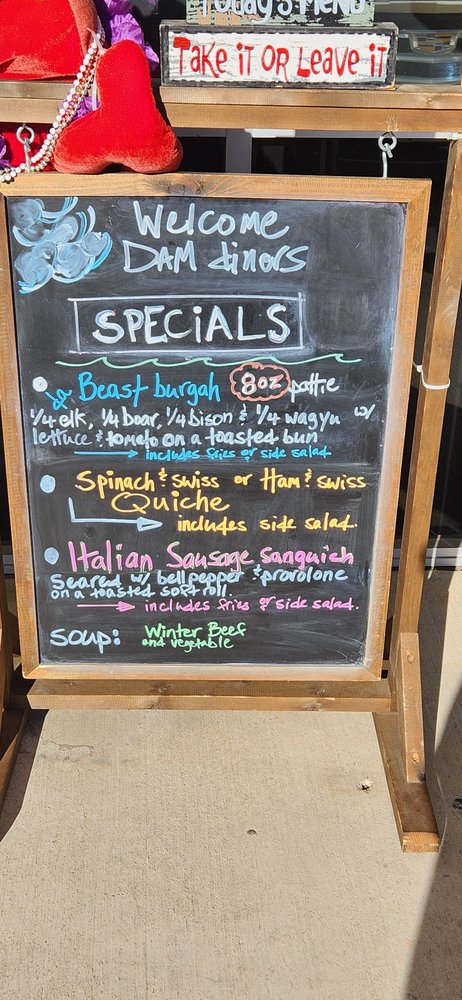 Today's Menu
Take it OR Leave it
Welcome
DAM diners
SPECiALS
da Beast burgah 8oz pattie
1/4 elk, 1/4 boar, 1/4 bison & 1/4 wagyu w/
lettuce & tomato on a toasted bun
includes fries or side salad
Spinach & swiss or Ham & swiss
Quiche
includes side salad.
Italian Sausage sanguich
seared w/ bell pepper & provolone
on a toasted soft roll.
includes fries or side salad.
Soup: Winter Beef
and vegetable